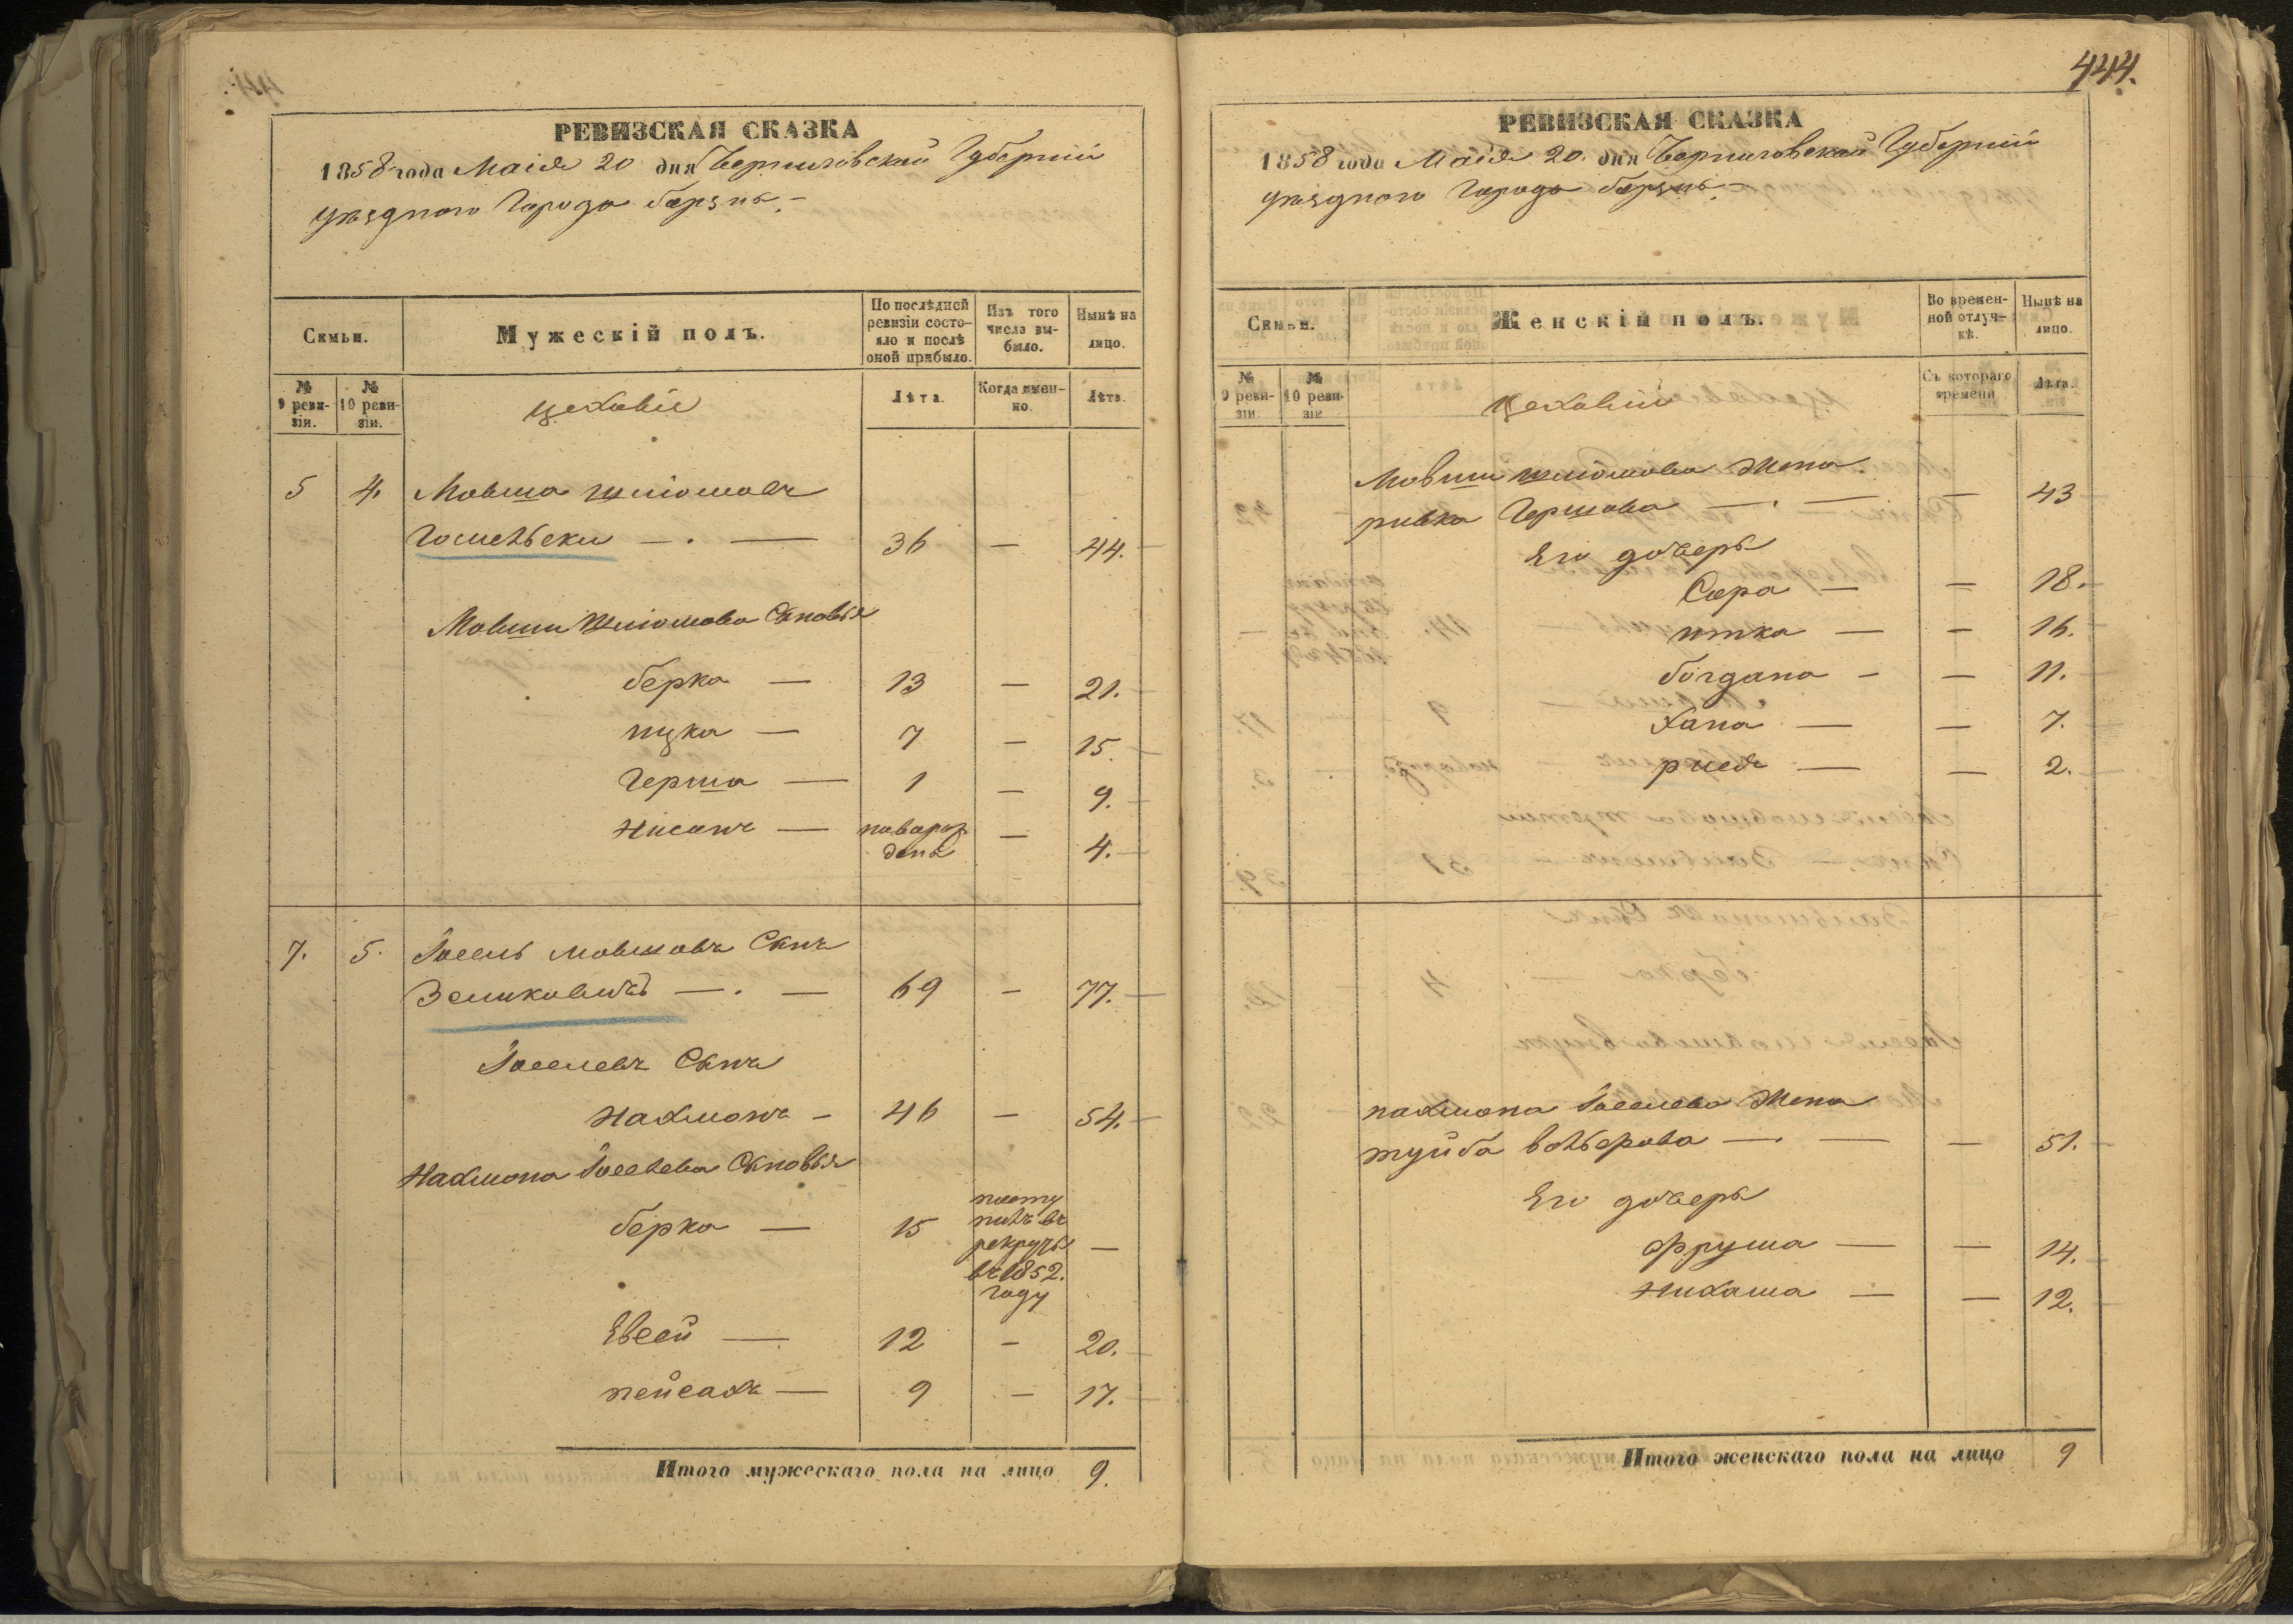 РЕВИЗСКАЯ СКАЗКА
1858 года Маія 20 дня Черниговской Губерніи
уѣзднаго Города Борзны
Семьи.
Мужескій полъ.
По послѣдней ревизіи состояло и послѣ оной прибыло.
Изъ того числа выбыло.
Нынѣ на лицо.
№ 9 ревизіи.
№ 10 ревизіи.
Цеховіе
Лѣта.
Когда именно.
Лѣта.
5 4. Мовша Шліомовъ
Гомельски — . — 36 — 44.
Мовши Шліомова Сыновья
берка — 13 — 21.
ицка — 7 — 15.
Герша — 1 — 9.
Нисонъ — новорож
денъ — 4.
7. 5. Іосель Мовшовъ Сынъ
Зеликовичъ — . — 69 — 77.
Іоселевъ Сынъ
Нахмонъ — 46 — 54.
Нахмона Іоселева Сыновья
берка — 15 посту
пилъ въ
рекруты —
въ 1852.
году
Евсей — 12 — 20.
пейсахъ — 9 — 17.
Итого мужескаго пола на лицо 9.
444.
РЕВИЗСКАЯ СКАЗКА
1858 года Маія 20. дня Черниговской Губерніи
уѣзднаго Города Борзны
Семьи.
Женскій полъ.
Во временной отлучкѣ.
Нынѣ на лицо.
№ 9 ревизіи
№ 10 ревизіи
Цеховіи
Съ котораго времени
Лѣта.
Мовши Шліомова Жена
ривка Гершова — . — — 43
Его дочеры
Сора — — 18.
итка — — 16.
богдана — — 11.
Хана — — 7.
рися — — 2.
нахмона Іоселева Жена
туйба вольфова — . — — 51.
Его дочеры
Фруша — — 14.
Нихама — — 12.
Итого женскаго пола на лицо 9